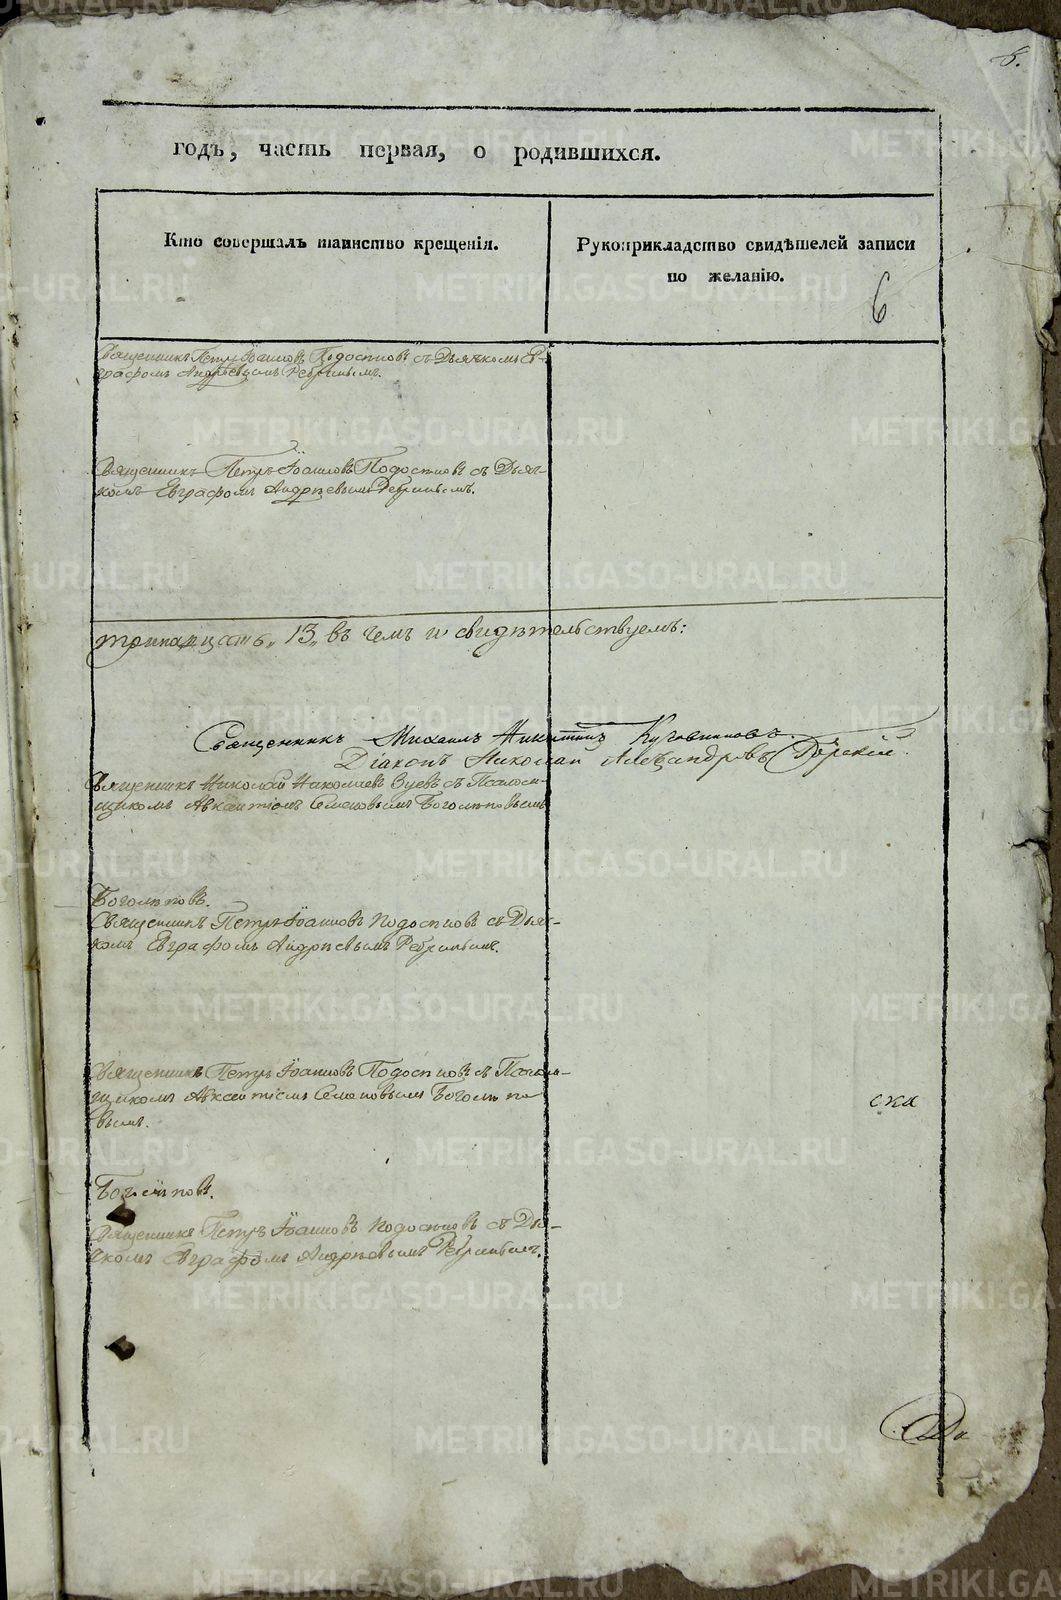 8.
годъ, часть первая, о родившихся.
Кто совершалъ таинство крещенія.
Рукоприкладство свидѣтелей записи
по желанію.
6
Священникъ Петръ Іоанновъ Подосеновъ съ Дьячкомъ Ев-
графомъ Андрѣевымъ Ребринымъ.
Священникъ Петръ Іоанновъ Подосеновъ съ Дьяч-
комъ Евграфомъ Андрѣевымъ Ребринымъ.
тринадцать „13„ въ чемъ и свидѣтельствуемъ:
Священникъ Михаилъ Никитинъ
Діаконъ Николай Александровъ
Священникъ Николай Николаевъ Зуевъ съ Псалом-
щикомъ Авксентіемъ Семеновымъ Боголѣповымъ
Боголѣповъ.
Священникъ Петръ Іоанновъ Подосеновъ съ Дьяч-
комъ Евграфомъ Андрѣевымъ Ребринымъ.
Священникъ Петръ Іоанновъ Подосеновъ съ Псалом-
щикомъ Авксентіемъ Семеновымъ Боголѣпо
вымъ.
ска
Боголѣповъ.
Священникъ Петръ Іоанновъ Подосеновъ съ Дья-
чкомъ Евграфомъ Андрѣевымъ Ребринымъ.
METRIKI.GASO-URAL.RU